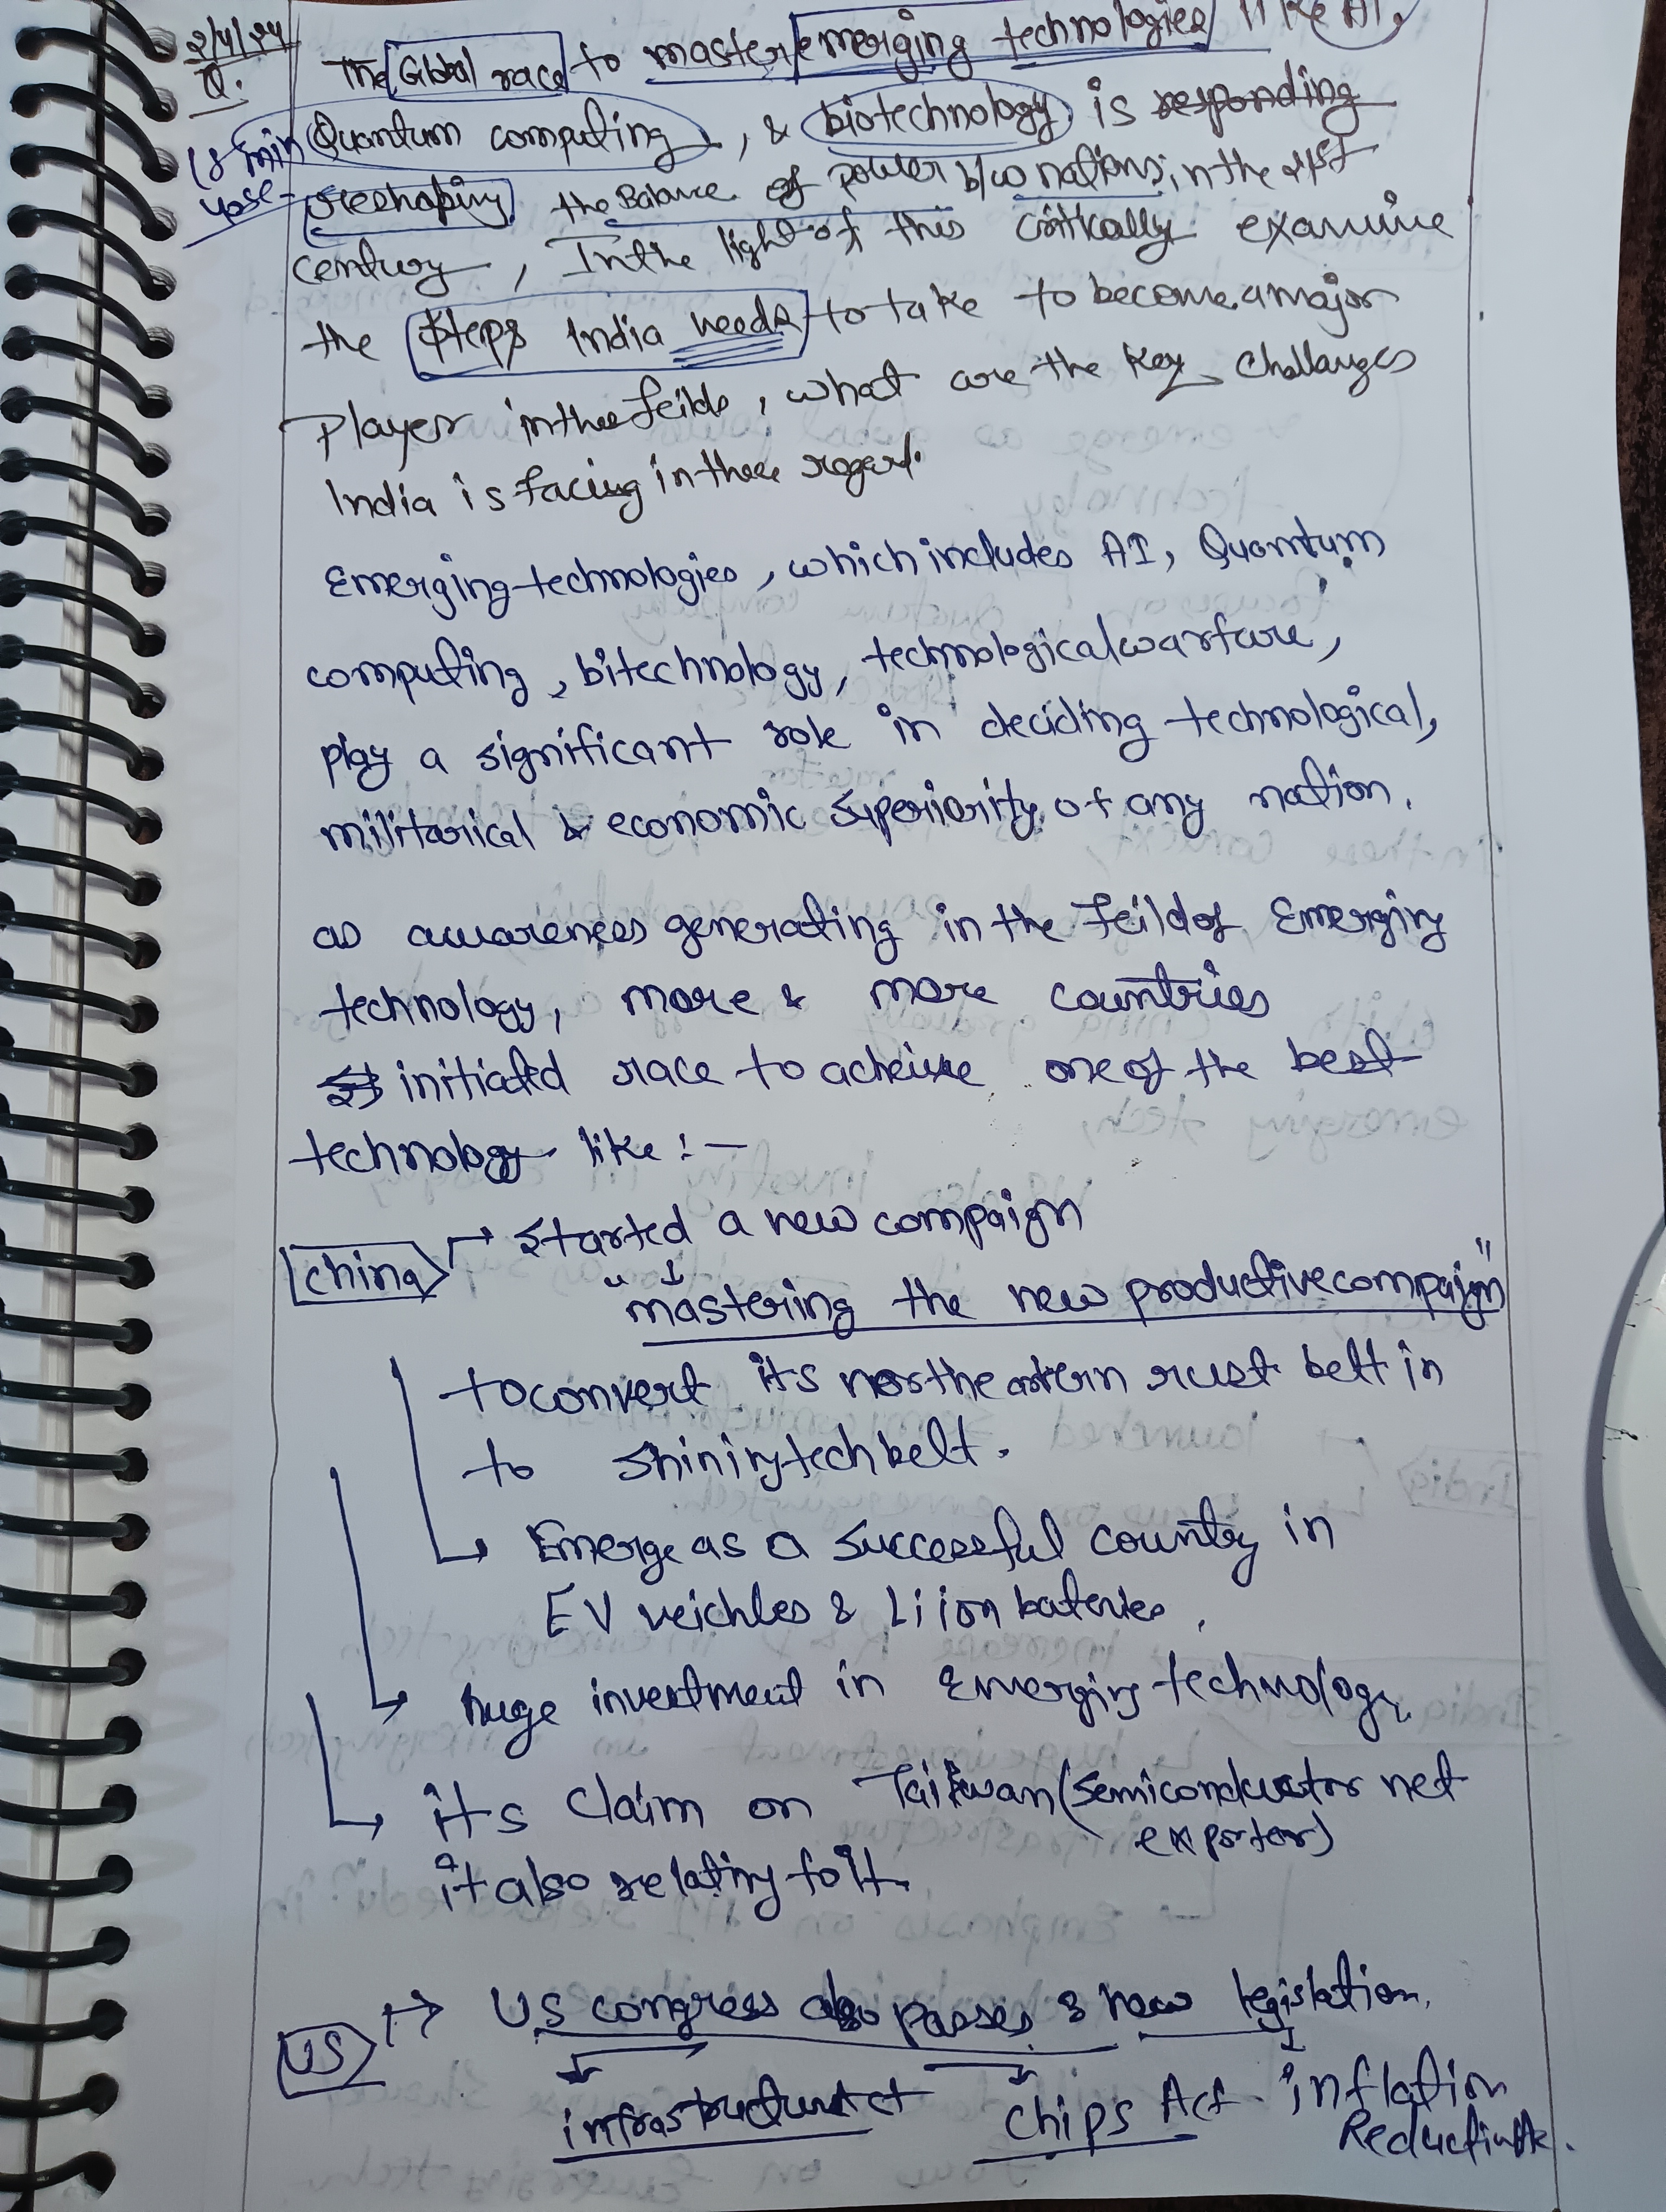 2/4/24 The Global race to master emerging technologies like AI,
Q. Quantum computing, & biotechnology is responding
(8 min
reshaping the Balance of power b/w nations, in the 21st
century, In the light of this critically examine
the steps India needs to take to become a major
Player in thee feilds, what are the key challanges
India is facing in these regard.
Emerging technologies, which includes AI, Quantum
computing, bitechnology, technological warfare,
play a significant role in deciding technological,
militarical & economic superiority of any nation.
as awareness generating in the feild of Emerging
technology, more & more countries
initiated race to acheive one of the best
technology like :-
China → started a new compaign
"mastering the new productive compaign"
to convert its northeastern rust belt in
to shining tech belt.
Emerge as a successful country in
EV veichles & Li ion bateries.
huge investment in Emerging technology
its claim on Taiwan (semiconductor net
exportor)
it also relating to it.
US → US congress also passes 3 new legislation.
infrastructure Act Chips Act inflation
Reduction Act.